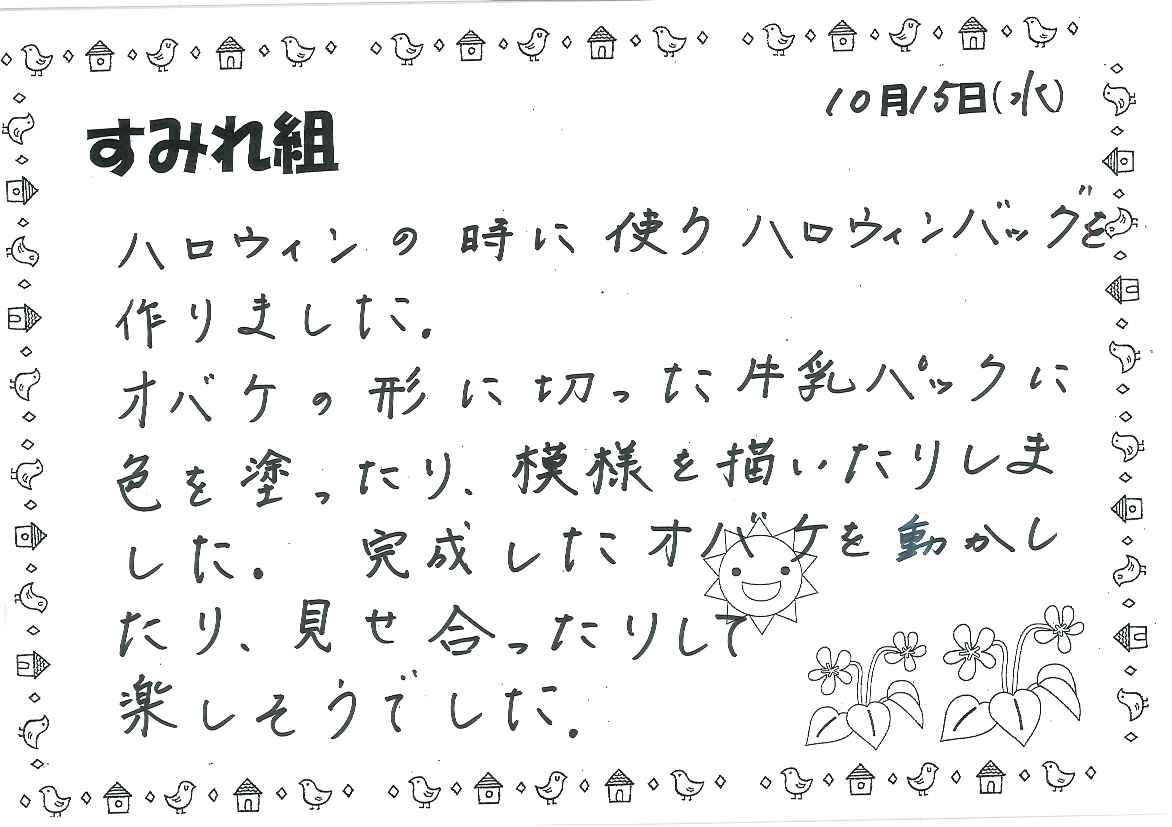 10月15日(水)
すみれ組
ハロウィンの時に使うハロウィンバッグを
作りました。
オバケの形に切った牛乳パックに
色を塗ったり、模様を描いたりしま
した。 完成したオバケを動かし
たり、見せ合ったりして
楽しそうでした。